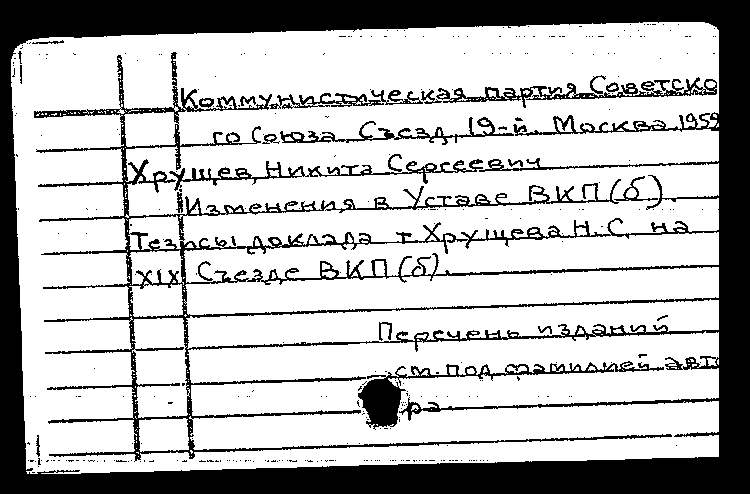 Коммунистическая партия Советско
го Союза. Съезд, 19-й. Москва. 1959
Хрущев, Никита Сергеевич
Изменения в Уставе ВКП(б).
Тезисы доклада т. Хрущева Н. С. на
XIX Съезде ВКП(б).
Перечень изданий
см. под фамилией авто
ра.